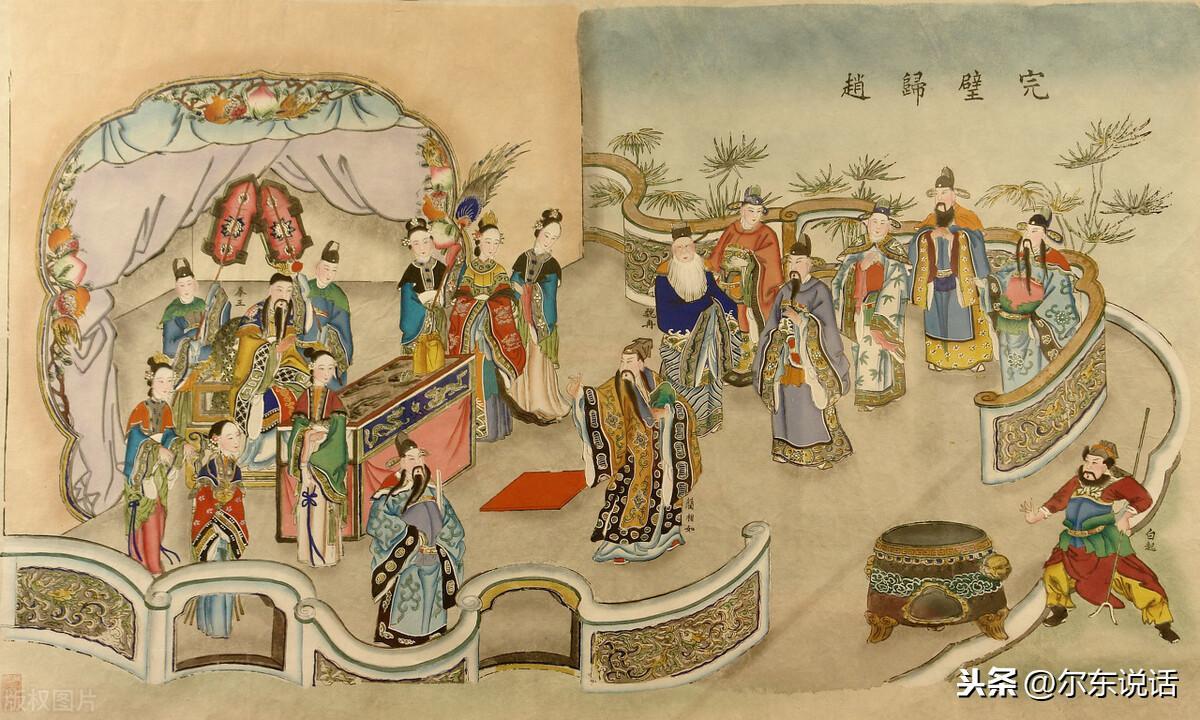 完璧歸趙
秦王
魏冉
藺相如
白起
版权图片
头条 @尔东说话